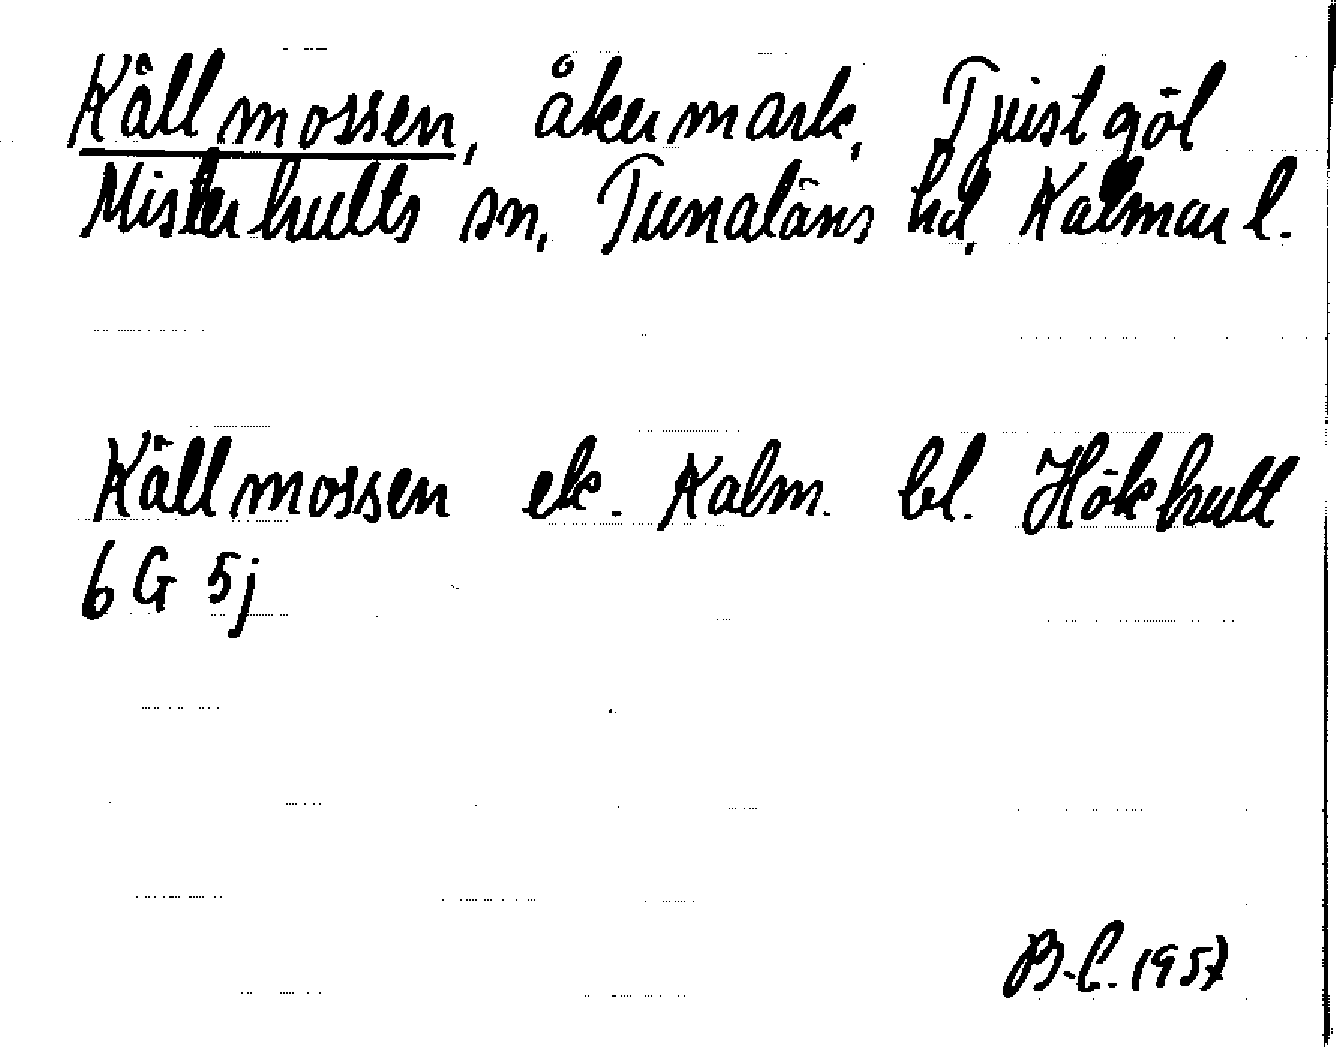 Källmossen, åkermark, Tjustgöl
Misterhults sn, Tunaläns hd, Kalmar l.
Källmossen ek. Kalm. bl. Hökhult
6G 5j
B-L. 1957